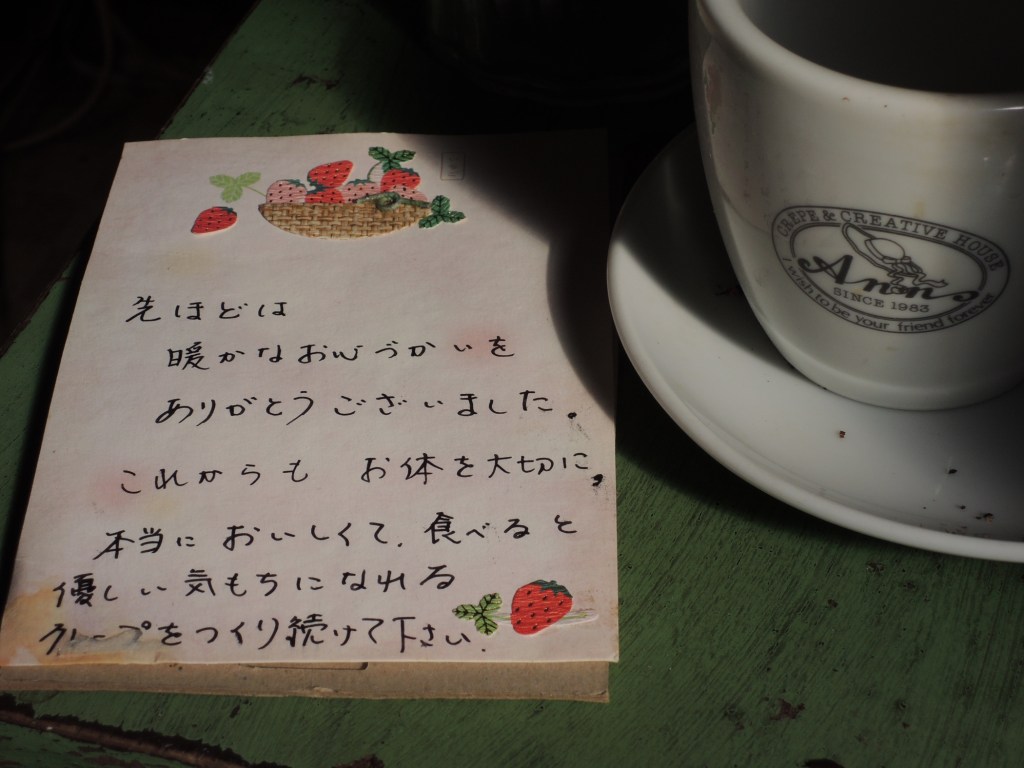 先ほどは
暖かなお心づかいを
ありがとうございました。
これからも お体を大切に。
本当に おいしくて、食べると
優しい気もちになれる
クレープをつくり続けて下さい。
CREPE & CREATIVE HOUSE
Anne
SINCE 1983
I wish to be your friend forever